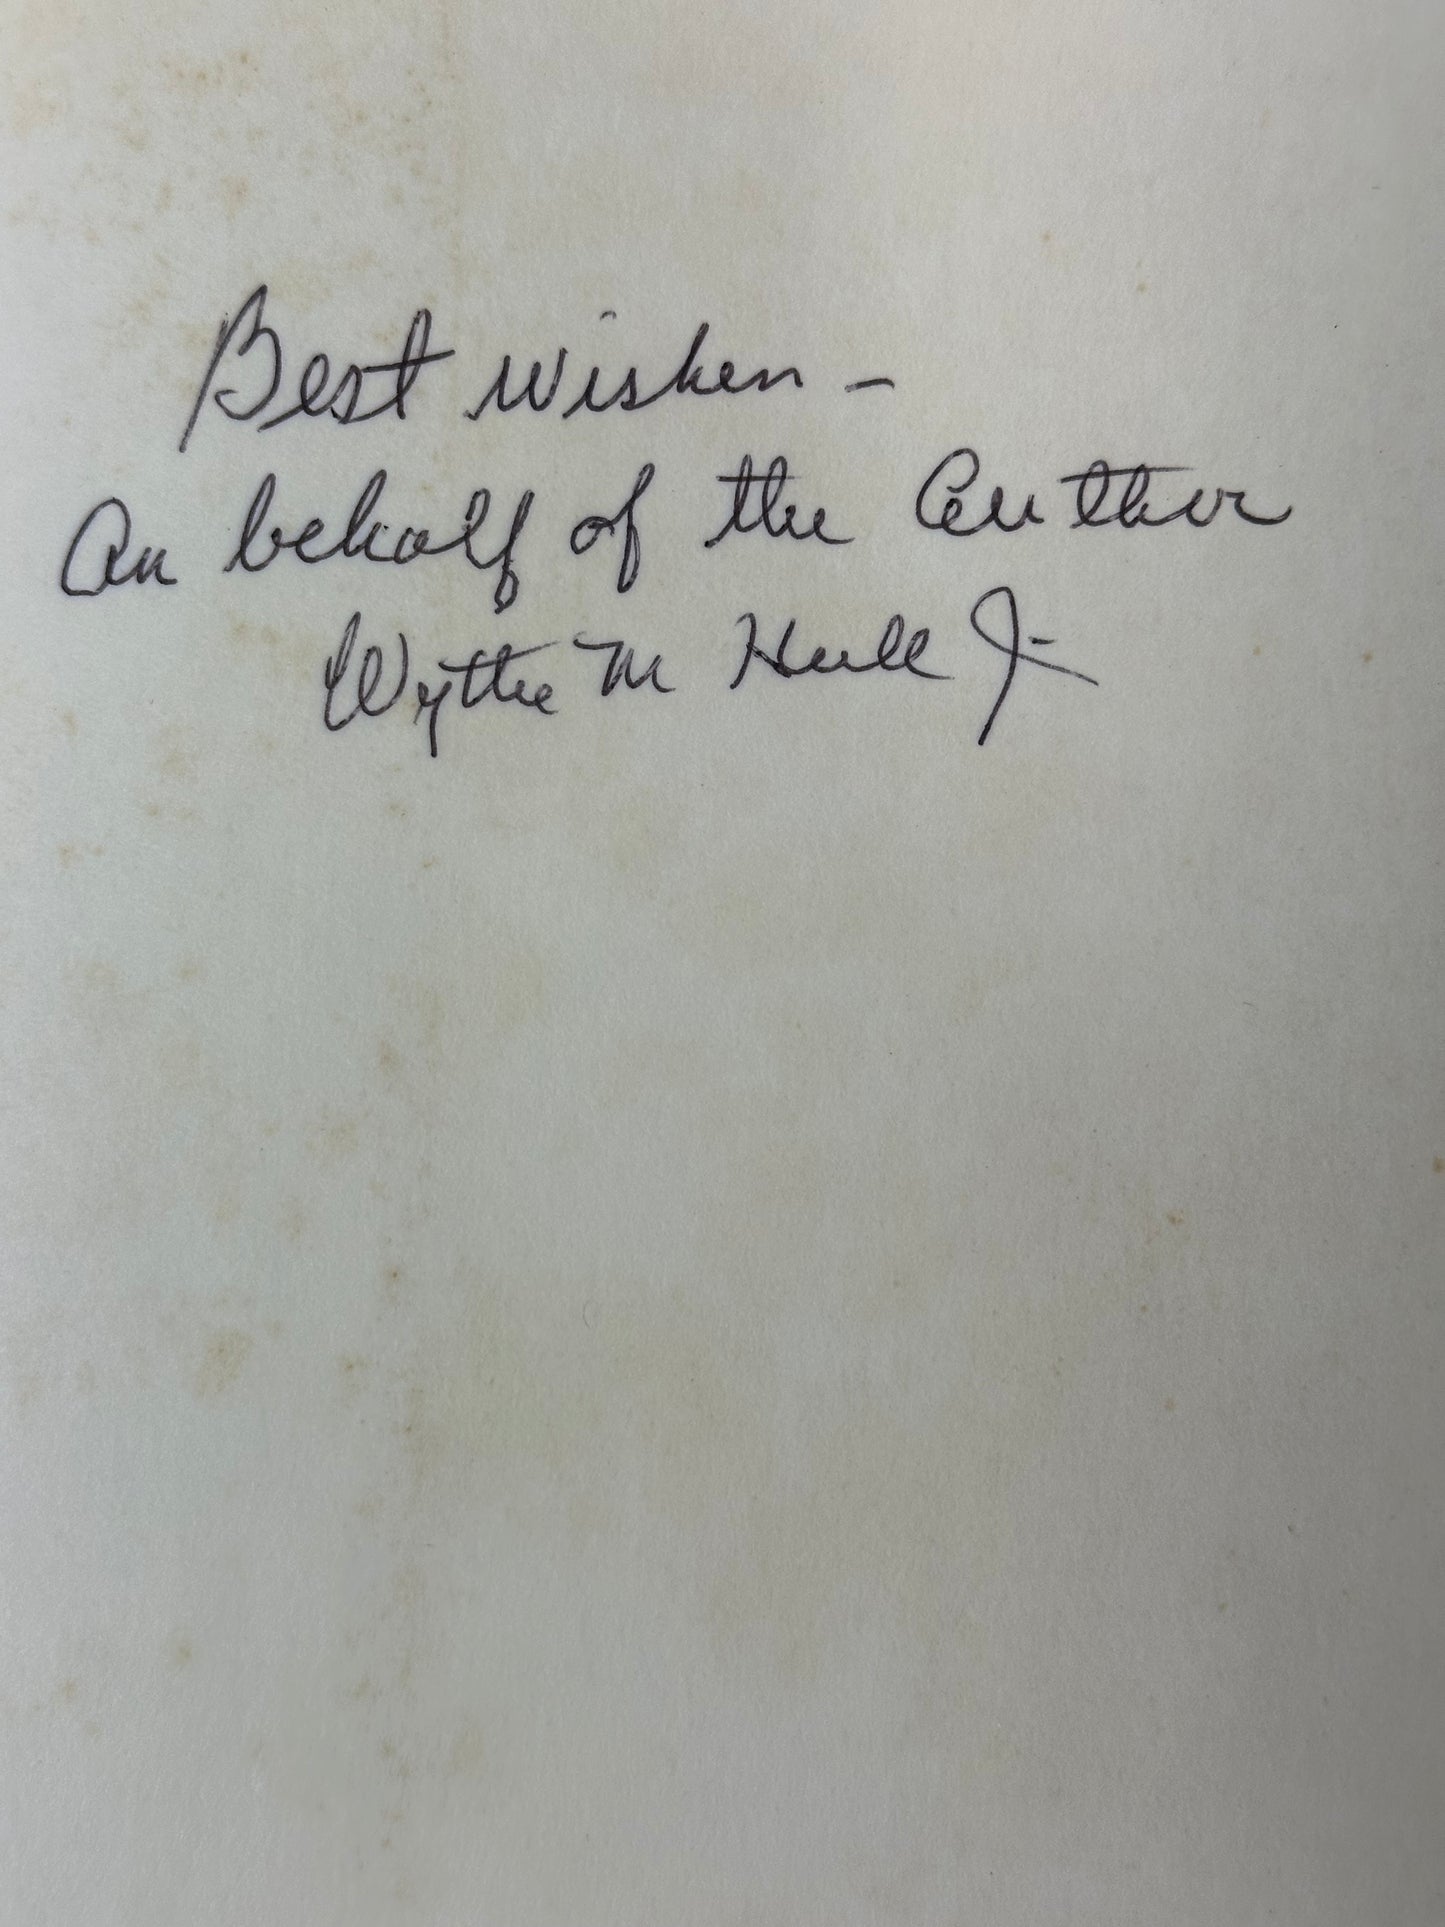 Best Wishes –
On behalf of the Author
Wythe M Hull Jr